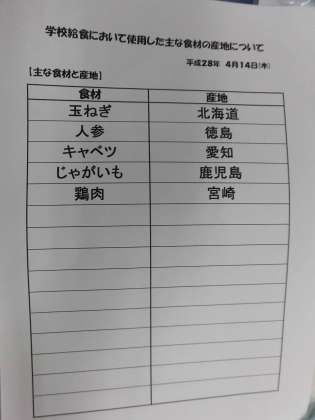 学校給食において使用した主な食材の産地について
平成28年 4月14日(木)
【主な食材と産地】
食材 産地
玉ねぎ 北海道
人参 徳島
キャベツ 愛知
じゃがいも 鹿児島
鶏肉 宮崎